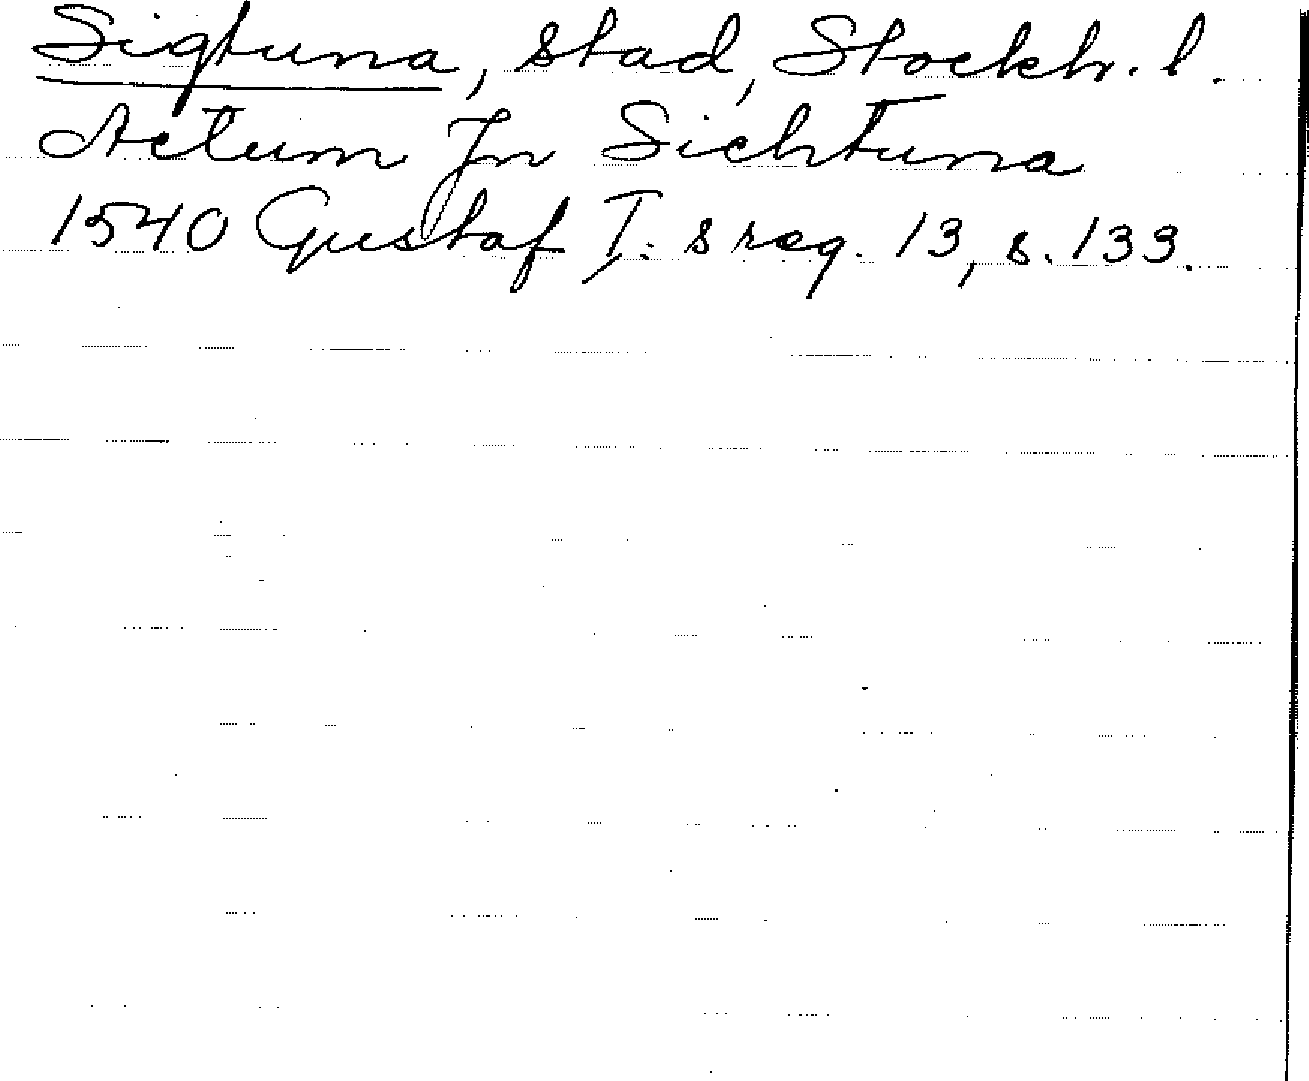 Sigtuna, stad, Stockh. l.
Actum Jn Sichtuna
1540 Gustaf I: s reg. 13, s. 133.